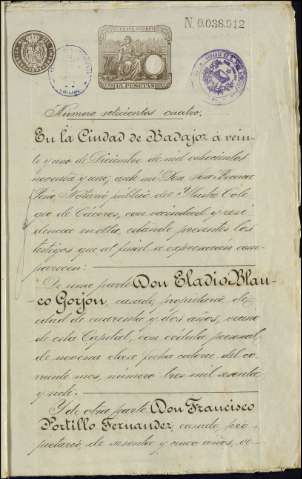 N. 0.038.912
Número setecientos cuatro.
En la Ciudad de Badajoz a vein-
te y uno de Diciembre de mil ochocientos
noventa y uno, ante mi Don
Notario público del Ilustre Cole-
gio de Cáceres, con vecindad y resi-
dencia en ella, estando presentes los
testigos que al final se expresaran com-
parecen:
De una parte Don Eladio Blan-
co Gorjón, casado, propietario, de
edad de cuarenta y dos años, vecino
de esta Capital, con cédula personal
de novena clase fecha catorce del co-
rriente mes, número tres mil sesenta
y siete.
Y de otra parte Don Francisco
Portillo Fernandez, casado, pro-
pietario, de sesenta y cinco años, ve-